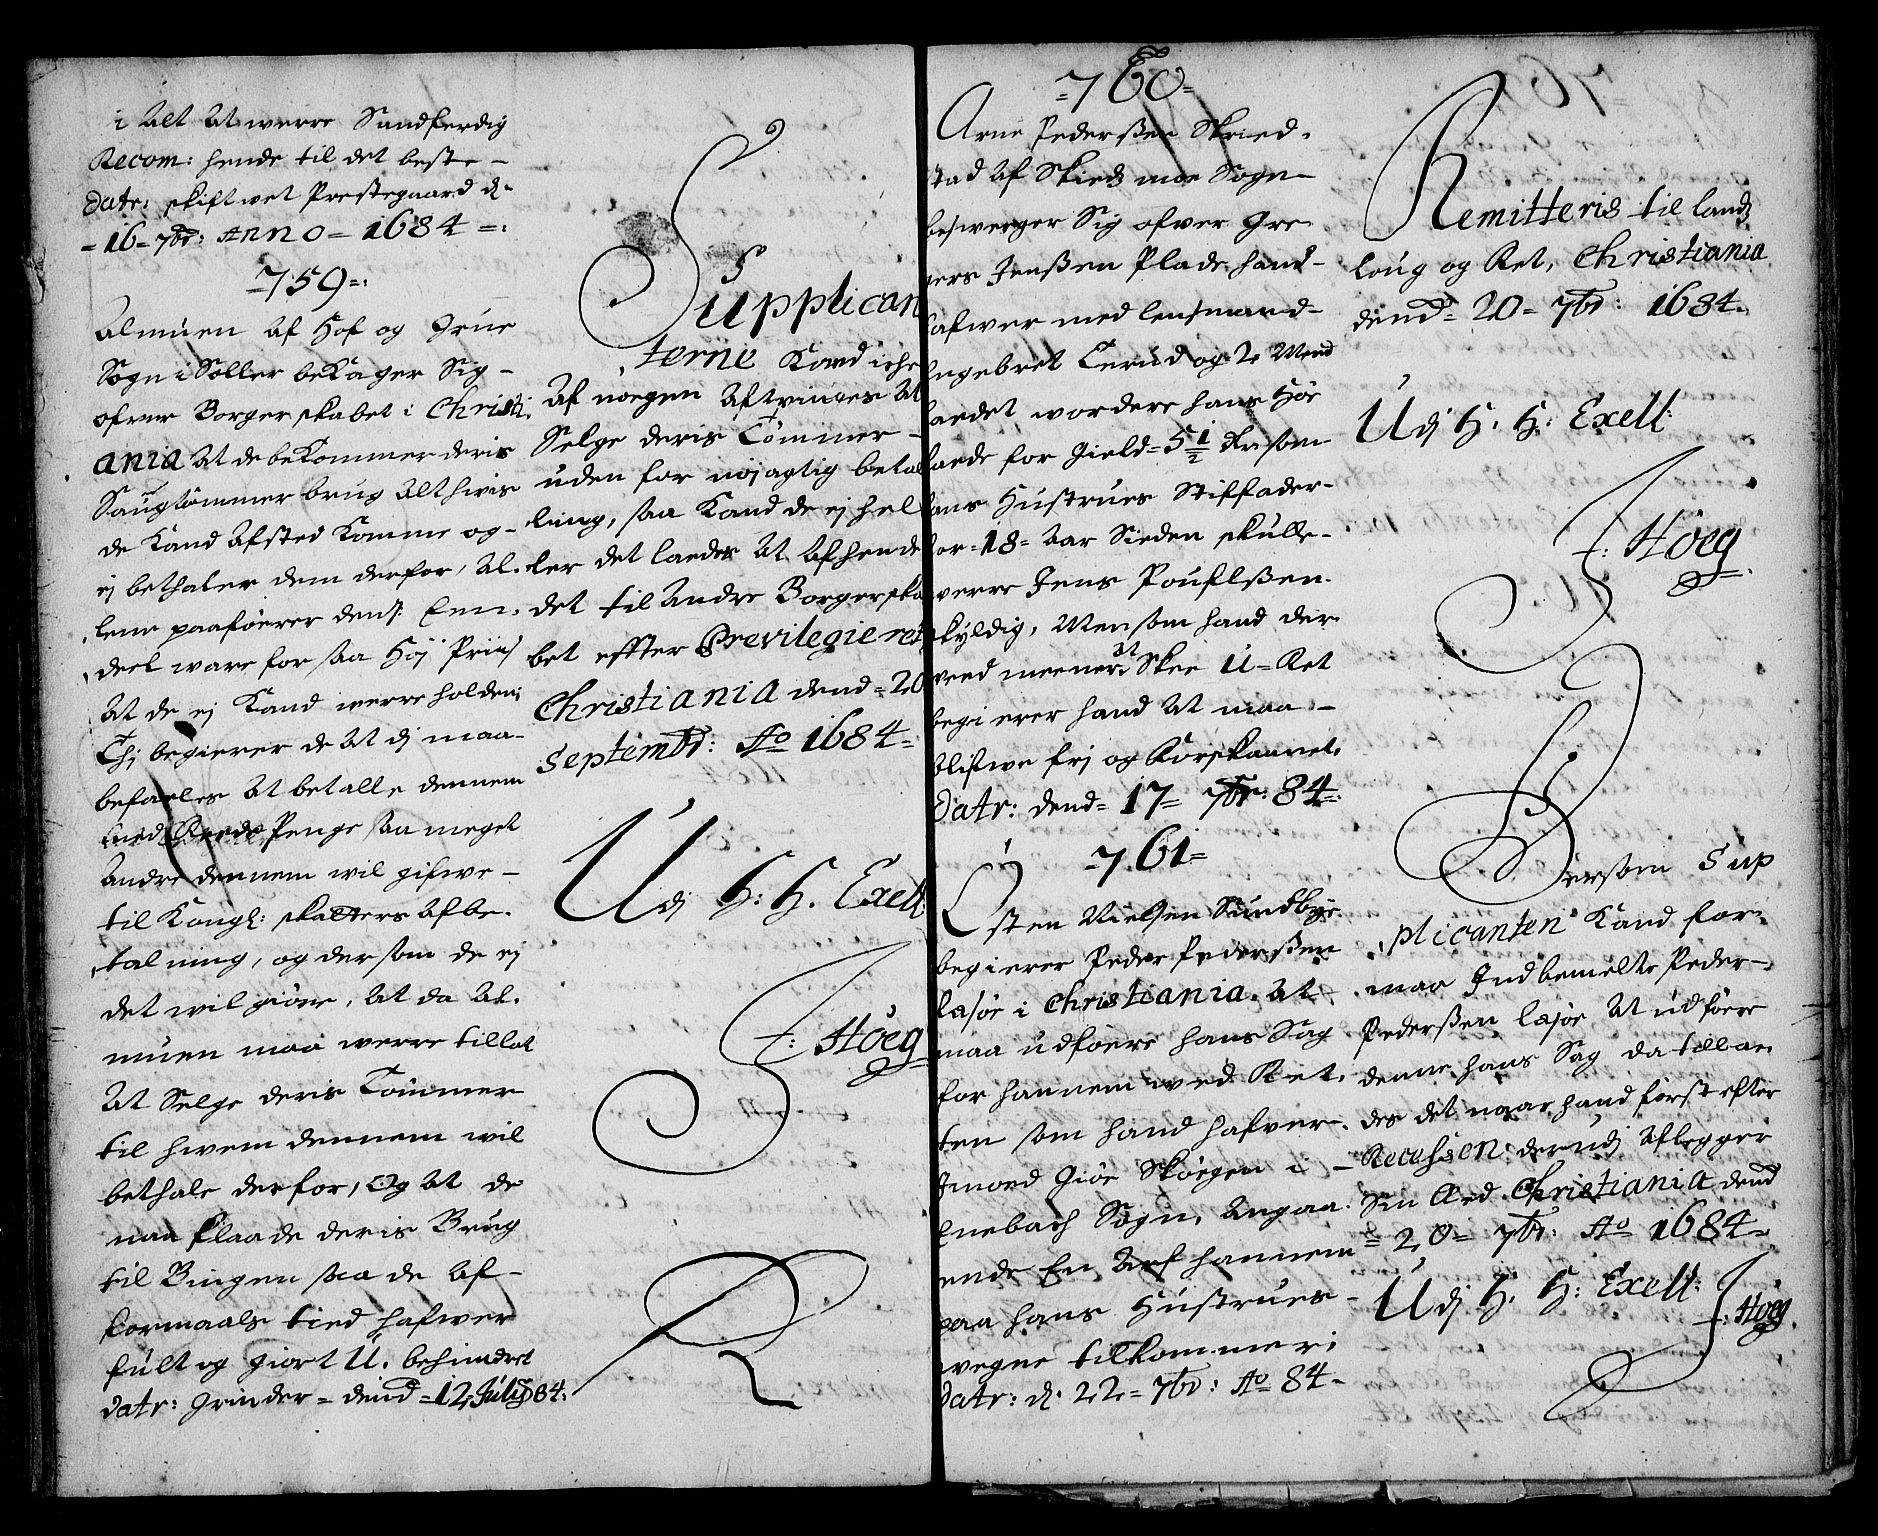 i Alt At werre Sandferdig
Recom: hende til det beste –
Datr: skiftwet Prestegaard d.
– 16 – 7br: Anno – 1684 –:
– 759 –:
Almuen af Hof og Grue
Sogn i Soller beKager Sig –
ofwer Borgerskabet i Christi,
ania At de beKommer deris
Saugtömmer brug Alt hwis
de Kand Afsted Komme og –
ej bethaler dem derfor, Al.
lene paaföerer dens: Enn,
deel ware for saa Høj Priis
At de ej Kand werre holden:
Thj begierer de At dj maa –
befaeles At betalle dennem
med Rede Penge saa meget
Andre dennem wil gifwe –
til Kongl: skatters Afbe.
talning, og dersom de ej
det wil giöre, At da Al.
muen maa werre tillat
At Selge deris Tömmer
til hwem dennem wil
bethale derfor, Og At de
maa flaade deris Brug
til Bingen saa de Af –
formaals tied hafwer
fult og giort U. behindret
datr: Grinder – dend – 12 Julij 84.
Supplican
terne Kand iche
Af nogen Aftvinges At
Selge deris Tömmer –
uden for nöjagtig betal
ling, saa Kand de ej hel
ler det laedes At Afhende
det til Andre Borgerska
bet effter Previlegieret
Christiania dend = 20
Septembr: Ao 1684 =
Udj H: H. Exell
f: Höeg
– 760 –
Arne Pederßen Skried.
stad Af Skiedsmoe Sogn –
beswerger Sig ofver Gre
gers Jenßen Plade, hand –
hafwer med lensmand –
Engebret Terud og 2 Mend
laedet wordere hans Hör
laede for gield = 5 1/2 dr som
hans Hustrues Stiffader –
for = 18 = Aar Sieden skulle –
werre Jens Pouflßen
skyldig, Men som hand der
wed meener At Skee U = Ret
begierer hand At maa –
blifwe frj og Korskaaret.
Datr: dend = 17 = 7br: 84 =
– 761 –
Östen Nielsen Sundbye
begierer Peder Pederßen
Lasör i Christiania. At
maa udföere hans Sag
for hannem wed Ret.
ten som hand hafver
Imoed Giör Skörgen i –
Enebach Sogn, Angaa.
ende En Arf hannem
paa hans Hustrues –
vegne tilkommer:
Datr: d. 22 = 7br: Ao 84 –
Remitteris til lands
loug og Ret, Christiania
dend = 20 = 7br: 1684.
Udj H. H: Exell:
f: Höeg
Dersom Sup
plicanten Kand for,
maa Indbemelte Peder –
Pederßen Lasör At udföere
denne hans Sag da tillae
des det naar hand först efter
Recessen derudj Aflegger
Sin Aed. Christiania dend
= 20 = 7br: Ao 1684 –
Udj H. H: Exell:
f: Höeg.